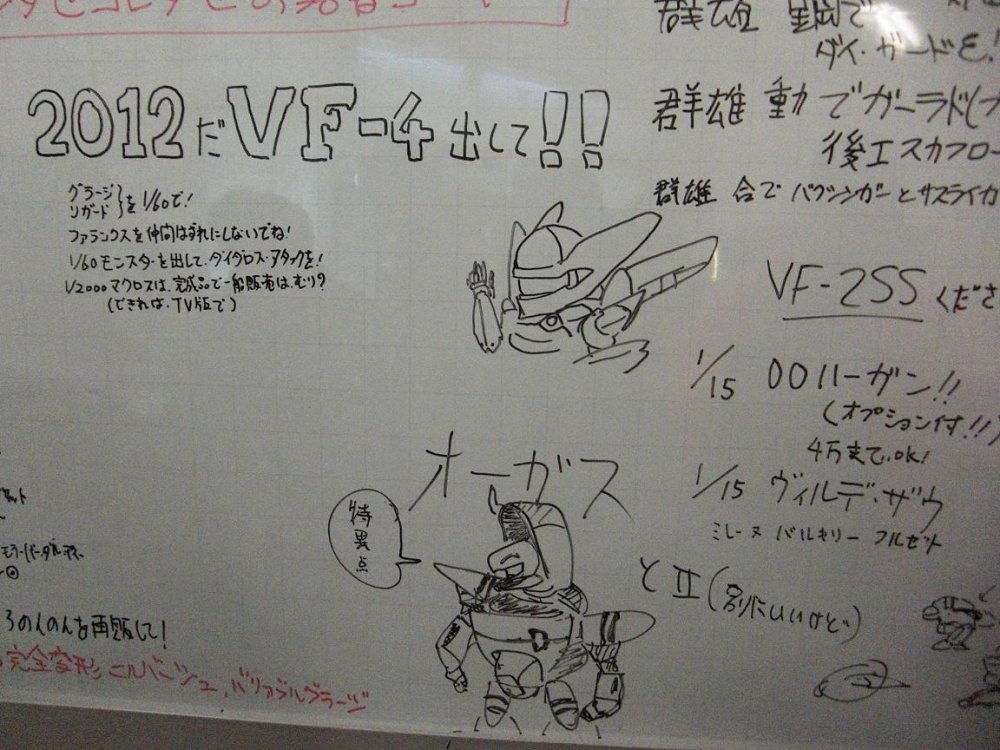 群雄
ダイ・ガードを!
2012だVF-4出して!!
群雄 動 でガーランド(
後エスカフロー
群雄 合で バクシンガーとサスライガ
グラージ
リガード
を1/60で!
ファランクスを仲間はずれにしないでね!
1/60モンスターを出して、ダイダロス・アタックを!
1/2000マクロスは、完成品で一般販売は、むり?
(できれば、TV版で)
VF-2SS くださ
1/15 DDハーガン!!
(オプション付!!)
4万まで、ok!
オーガス
特異点
1/15 ヴィルデ・ザウ
ミレーヌ バルキリー フルセット
とⅡ(別にいいけど)
を再販して!
完全変形ニルバーシュ、バリアブルグラージ